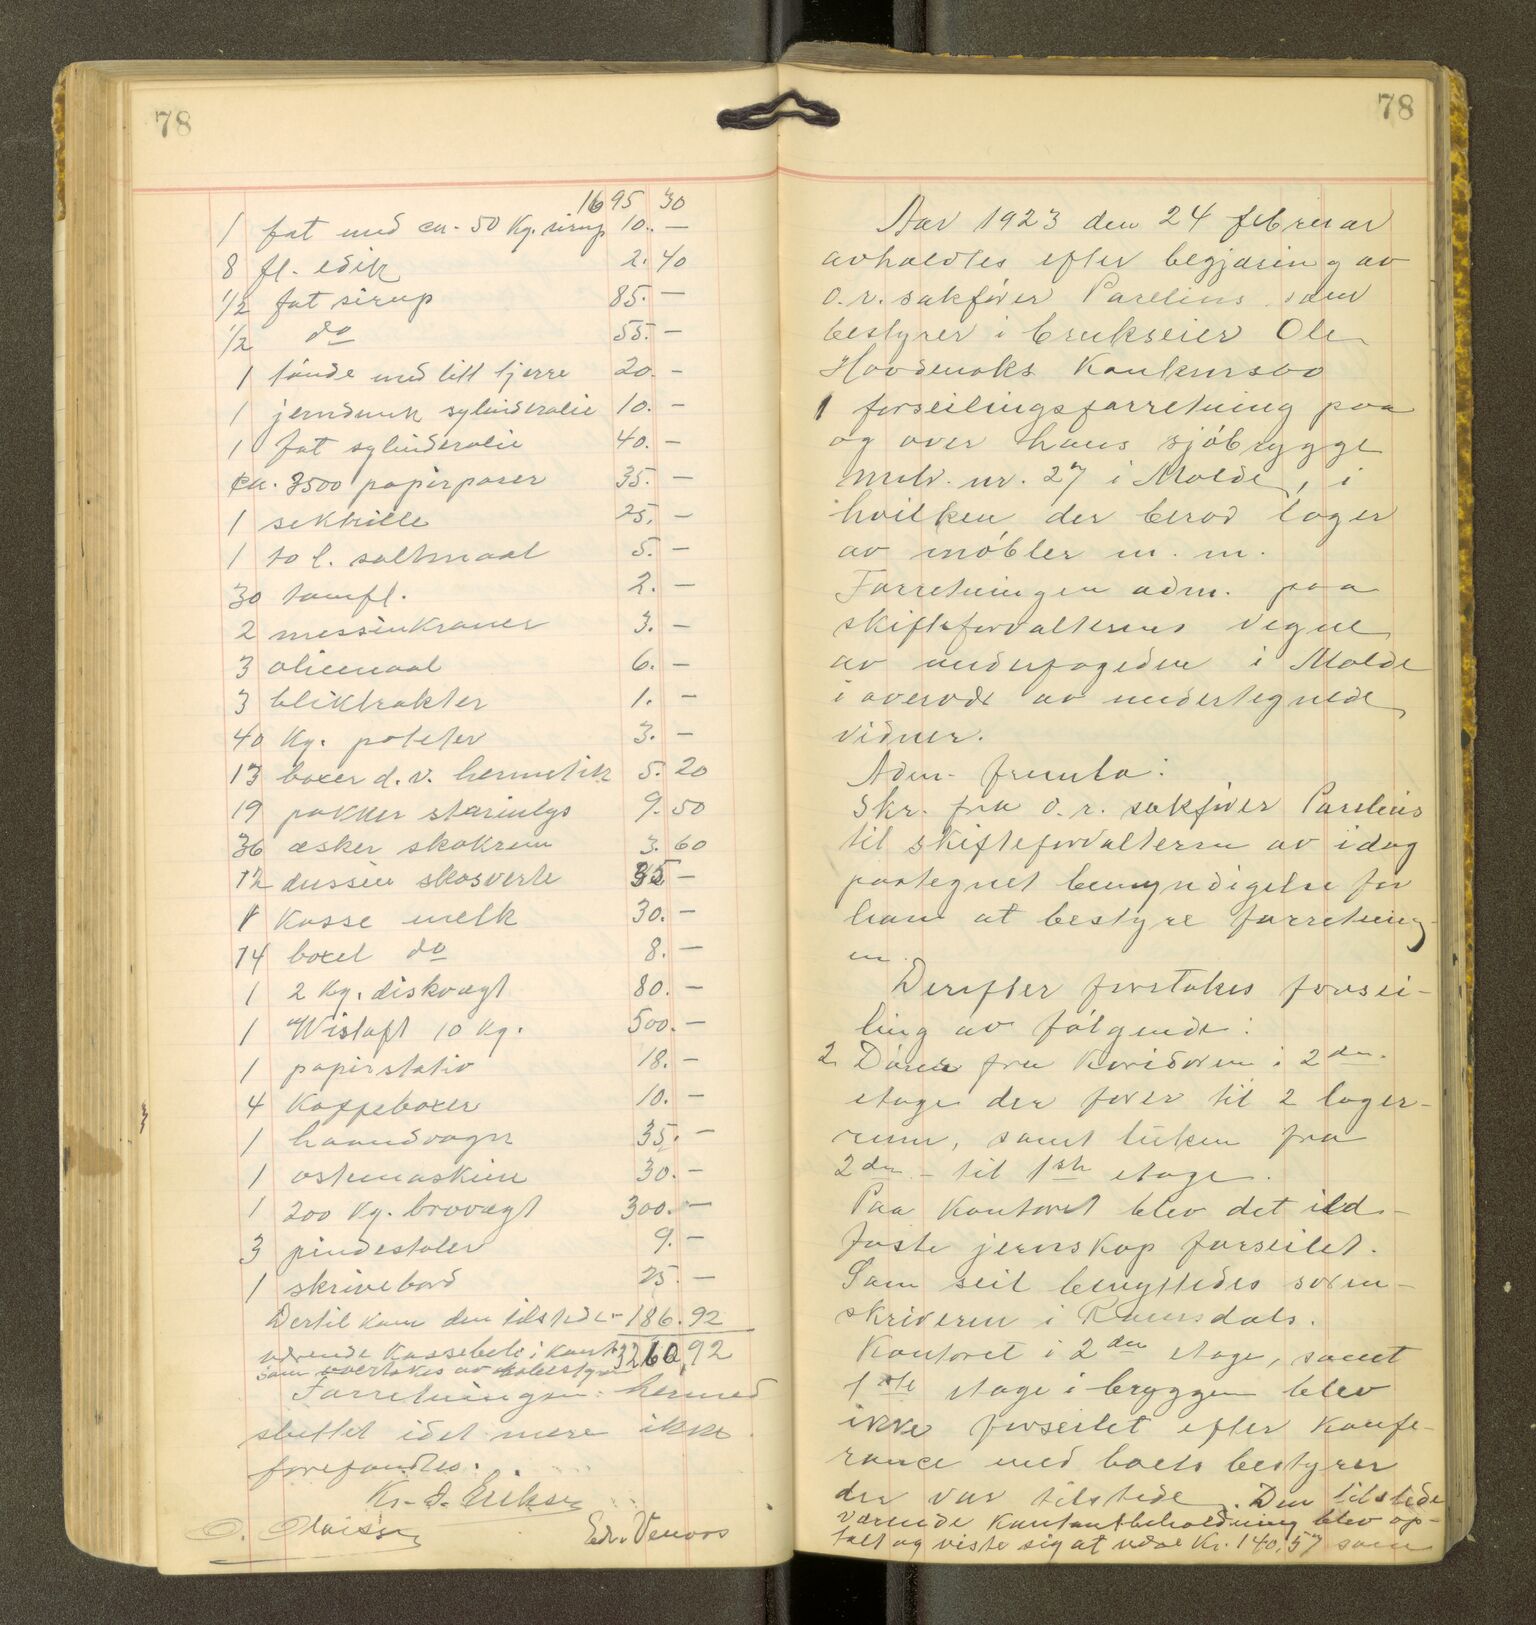 78
1695 30
1 fat med ca. 50 Kg. sirup 10. —
8 fl. edik 2. 40
1/2 fat sirup 85. —
1/2 do 55. —
1 tønde med litt tjerre 20. —
1 jerndunk sylinderolie 10. —
1 fat sylinderolie 40. —
ca. 3500 papirposer 35. —
1 sektrille 25. —
1 10 l. saltmaal 5. —
30 tomfl. 2. —
2 messinkraner 3. —
3 oliemaal 6. —
3 bliktrakter 1. —
40 Kg. poteter 3. —
13 boxer d. v. hermetik 5. 20
19 pakker stearinlys 9. 50
36 æsker skokrem 3. 60
12 dussin skosverte 35 —
1 Kasse melk 30. —
14 boxel do 8. —
1 2 Kg. diskvægt 80. —
1 Wistoft 10 Kg. 500. —
1 papirstativ 18. —
4 Kaffeboxer 10. —
1 haandvogn 35. —
1 ostemaskin 30. —
1 200 Kg. brovægt 300. —
3 pindestoler 9. —
1 skrivebord 25. —
Dertil kom den tilstede- 186. 92
værende Kassebeh. i kont. 3260, 92
som overtokes av bobestyr.
Forretningen hermed
sluttet idet mere ikke
forefandtes.
Kr. J. Eriksen
O. Olaisen Edv. Venoos
78
Aar 1923 den 24 februar
avholdtes efter begjæring av
o. r. sakfører Parelius som
bestyrer i brukseier Ole
Hovdenaks Konkursbo
1 forseilingsforretning paa
og over hans sjøbrygge
matr. nr. 27 i Molde, i
hvilken der beror lager
av møbler m. m.
Forretningen adm. paa
skifteforvalterens vegne
av underfogeden i Molde
i overvær av undertegnede
vidner.
Adm. fremla:
Skr. fra o. r. sakfører Parelius
til skifteforvalteren av idag
paategnet bemyndigelse for
ham at bestyre forretning-
en.
Derefter foretokes forsei-
ling av følgende:
2 Dører fra Koridoren i 2den
etage der fører til 2 lager-
rum, samt luken fra
2den - til 1ste etage.
Paa Kontoret blev det ild-
faste jernskap forseilet.
Som seil benyttedes soren-
skriveren i Romsdals.
Kontoret i 2den etage, samt
1ste etage i bryggen blev
ikke forseilet efter Konfe-
rance med boets bestyrer
der var tilstede. Den tilstede
værende Kontantbeholdning blev op-
talt og viste sig at være Kr. 140,57 som